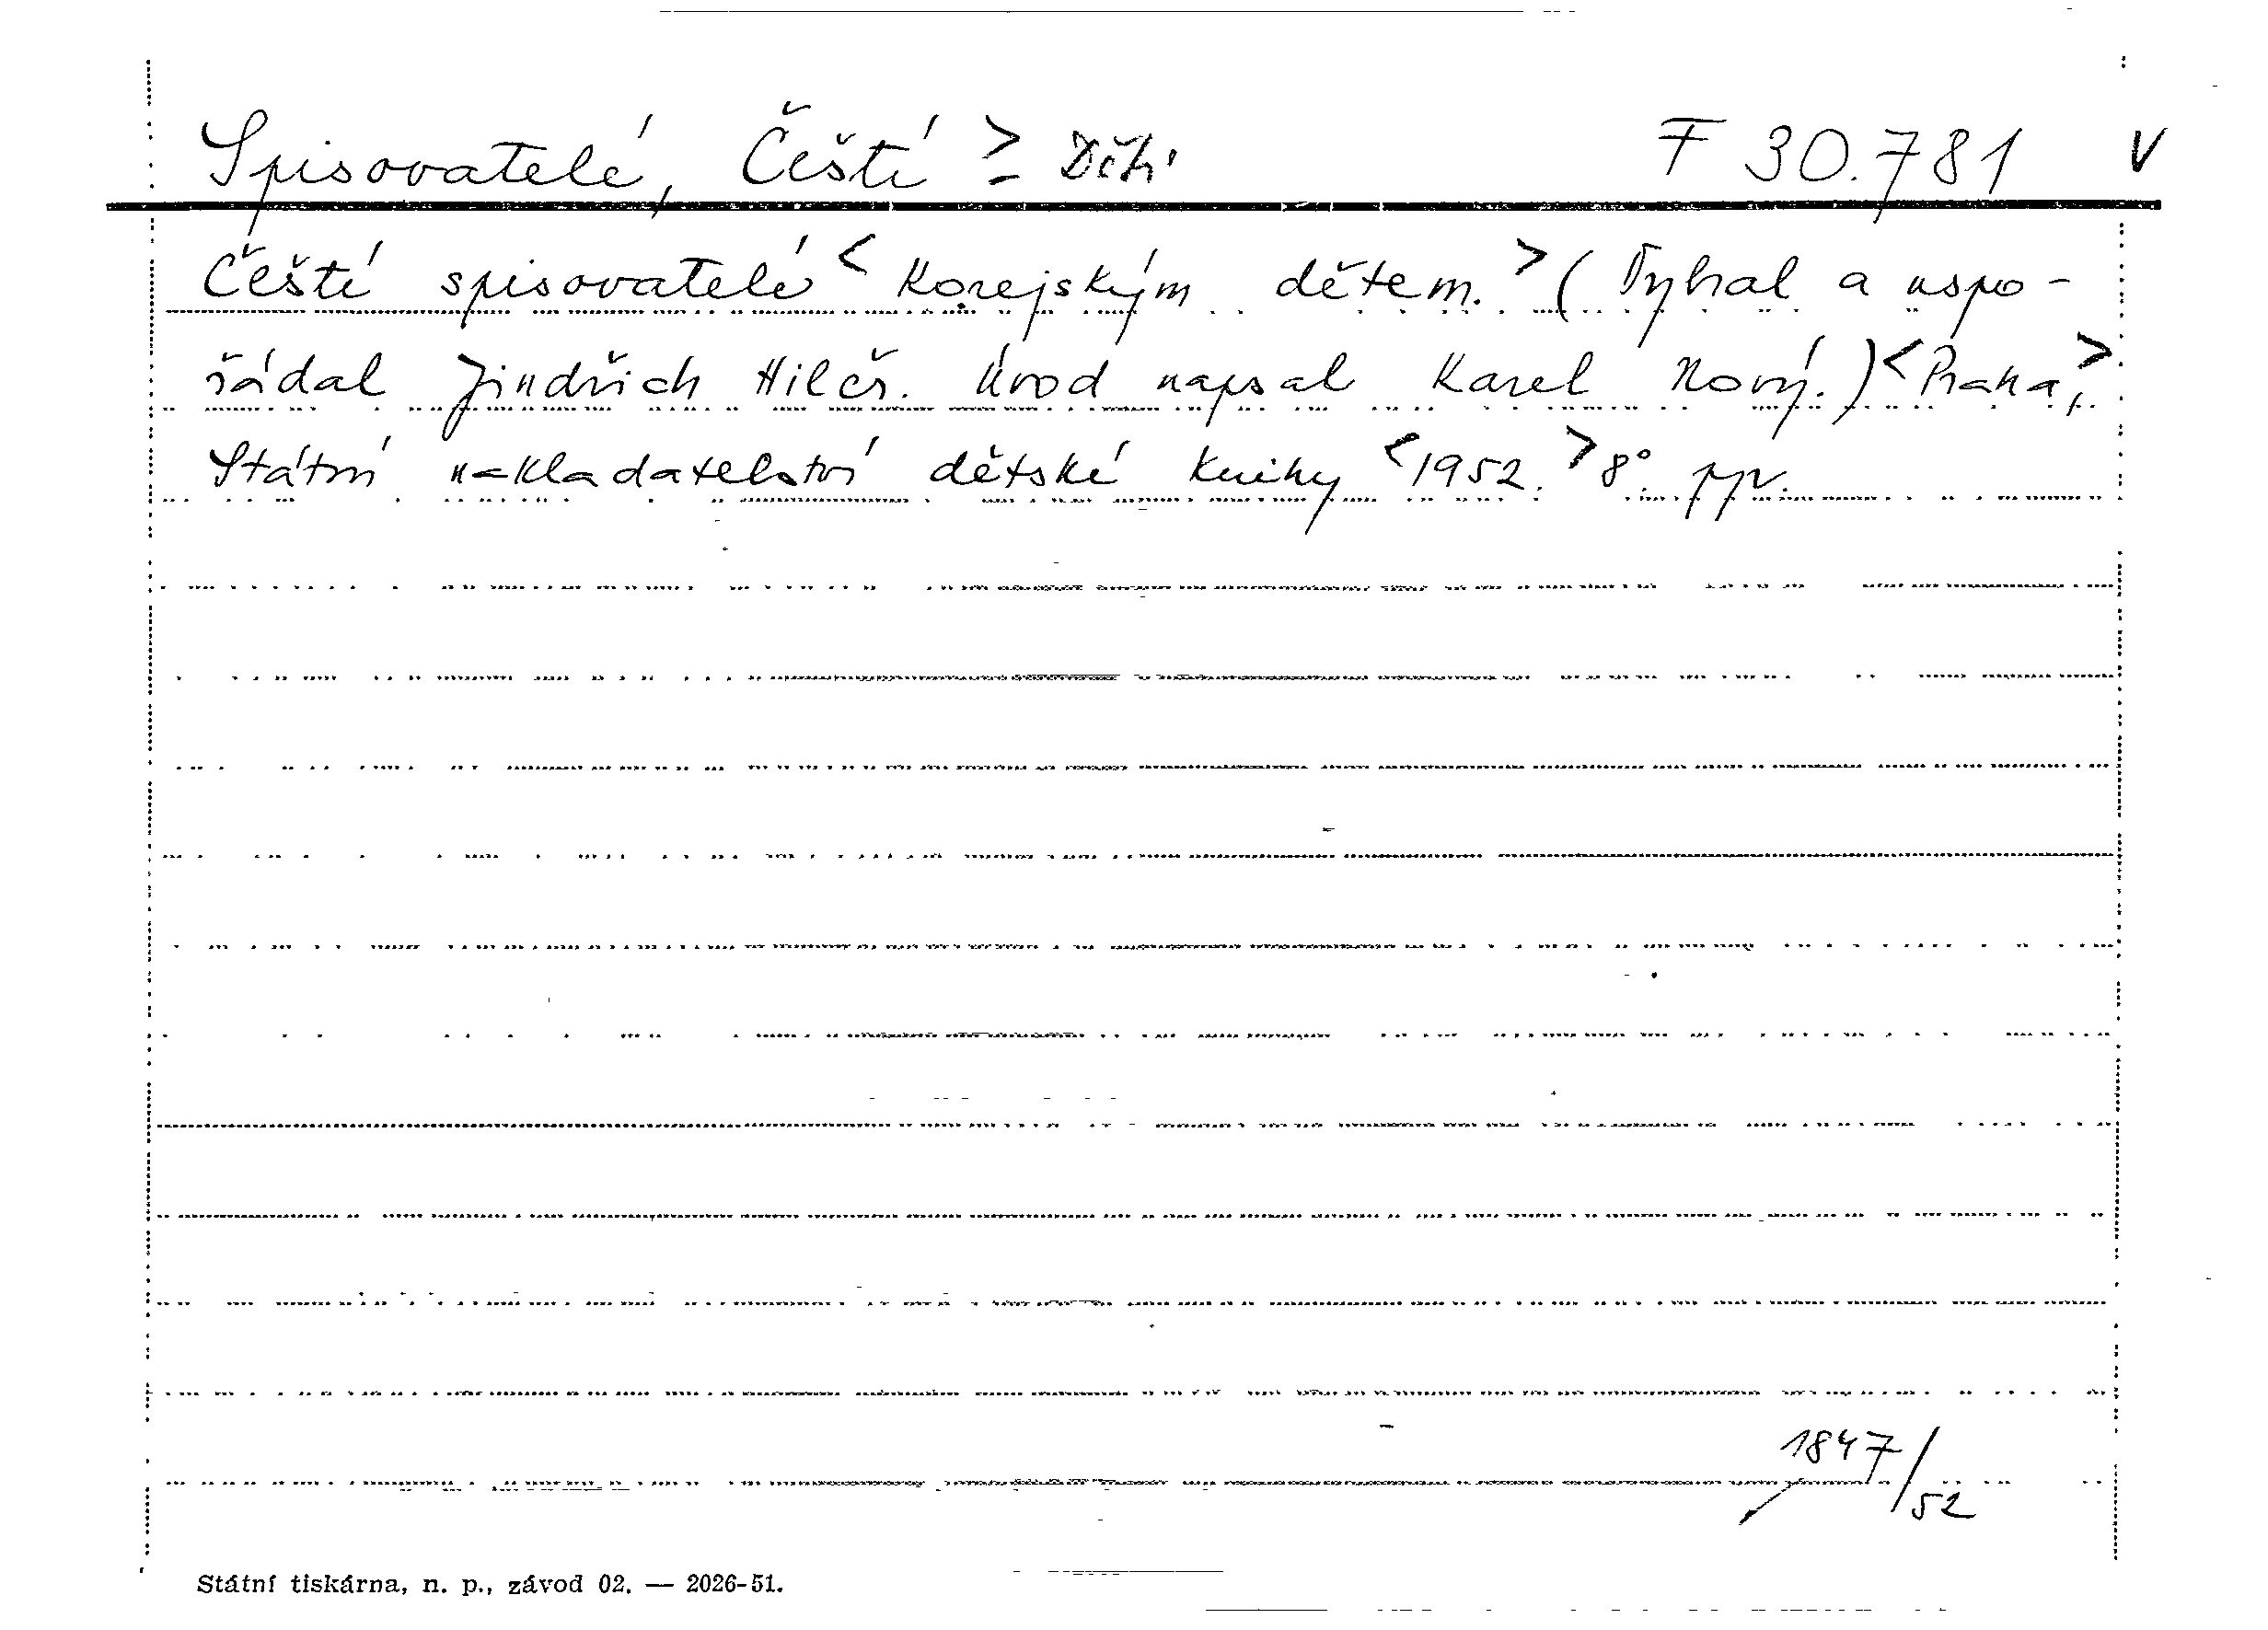 Spisovatelé, Čeští > - Děti F 30.781 V
Čeští spisovatelé < Korejským dětem. > ( Vybral a uspo-
řádal Jindřich Hilčr. Úvod napsal Karel Nový. ) < Praha, >
Státní nakladatelství dětské knihy < 1952. > 8°. ppv.
1847/52
Státní tiskárna, n. p., závod 02. — 2026-51.